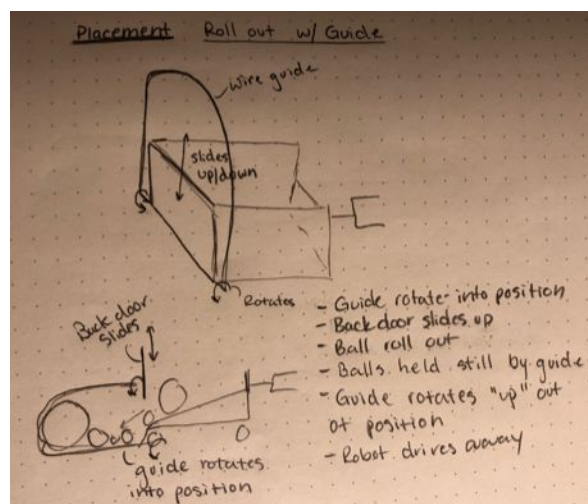 Placement Roll out w/ Guide
wire guide
slides
up/down
Rotates
Back door
slides
guide rotates
into position
- Guide rotate into position
- Back door slides up
- Ball roll out
- Balls held still by guide
- Guide rotates "up" out
of position
- Robot drives away